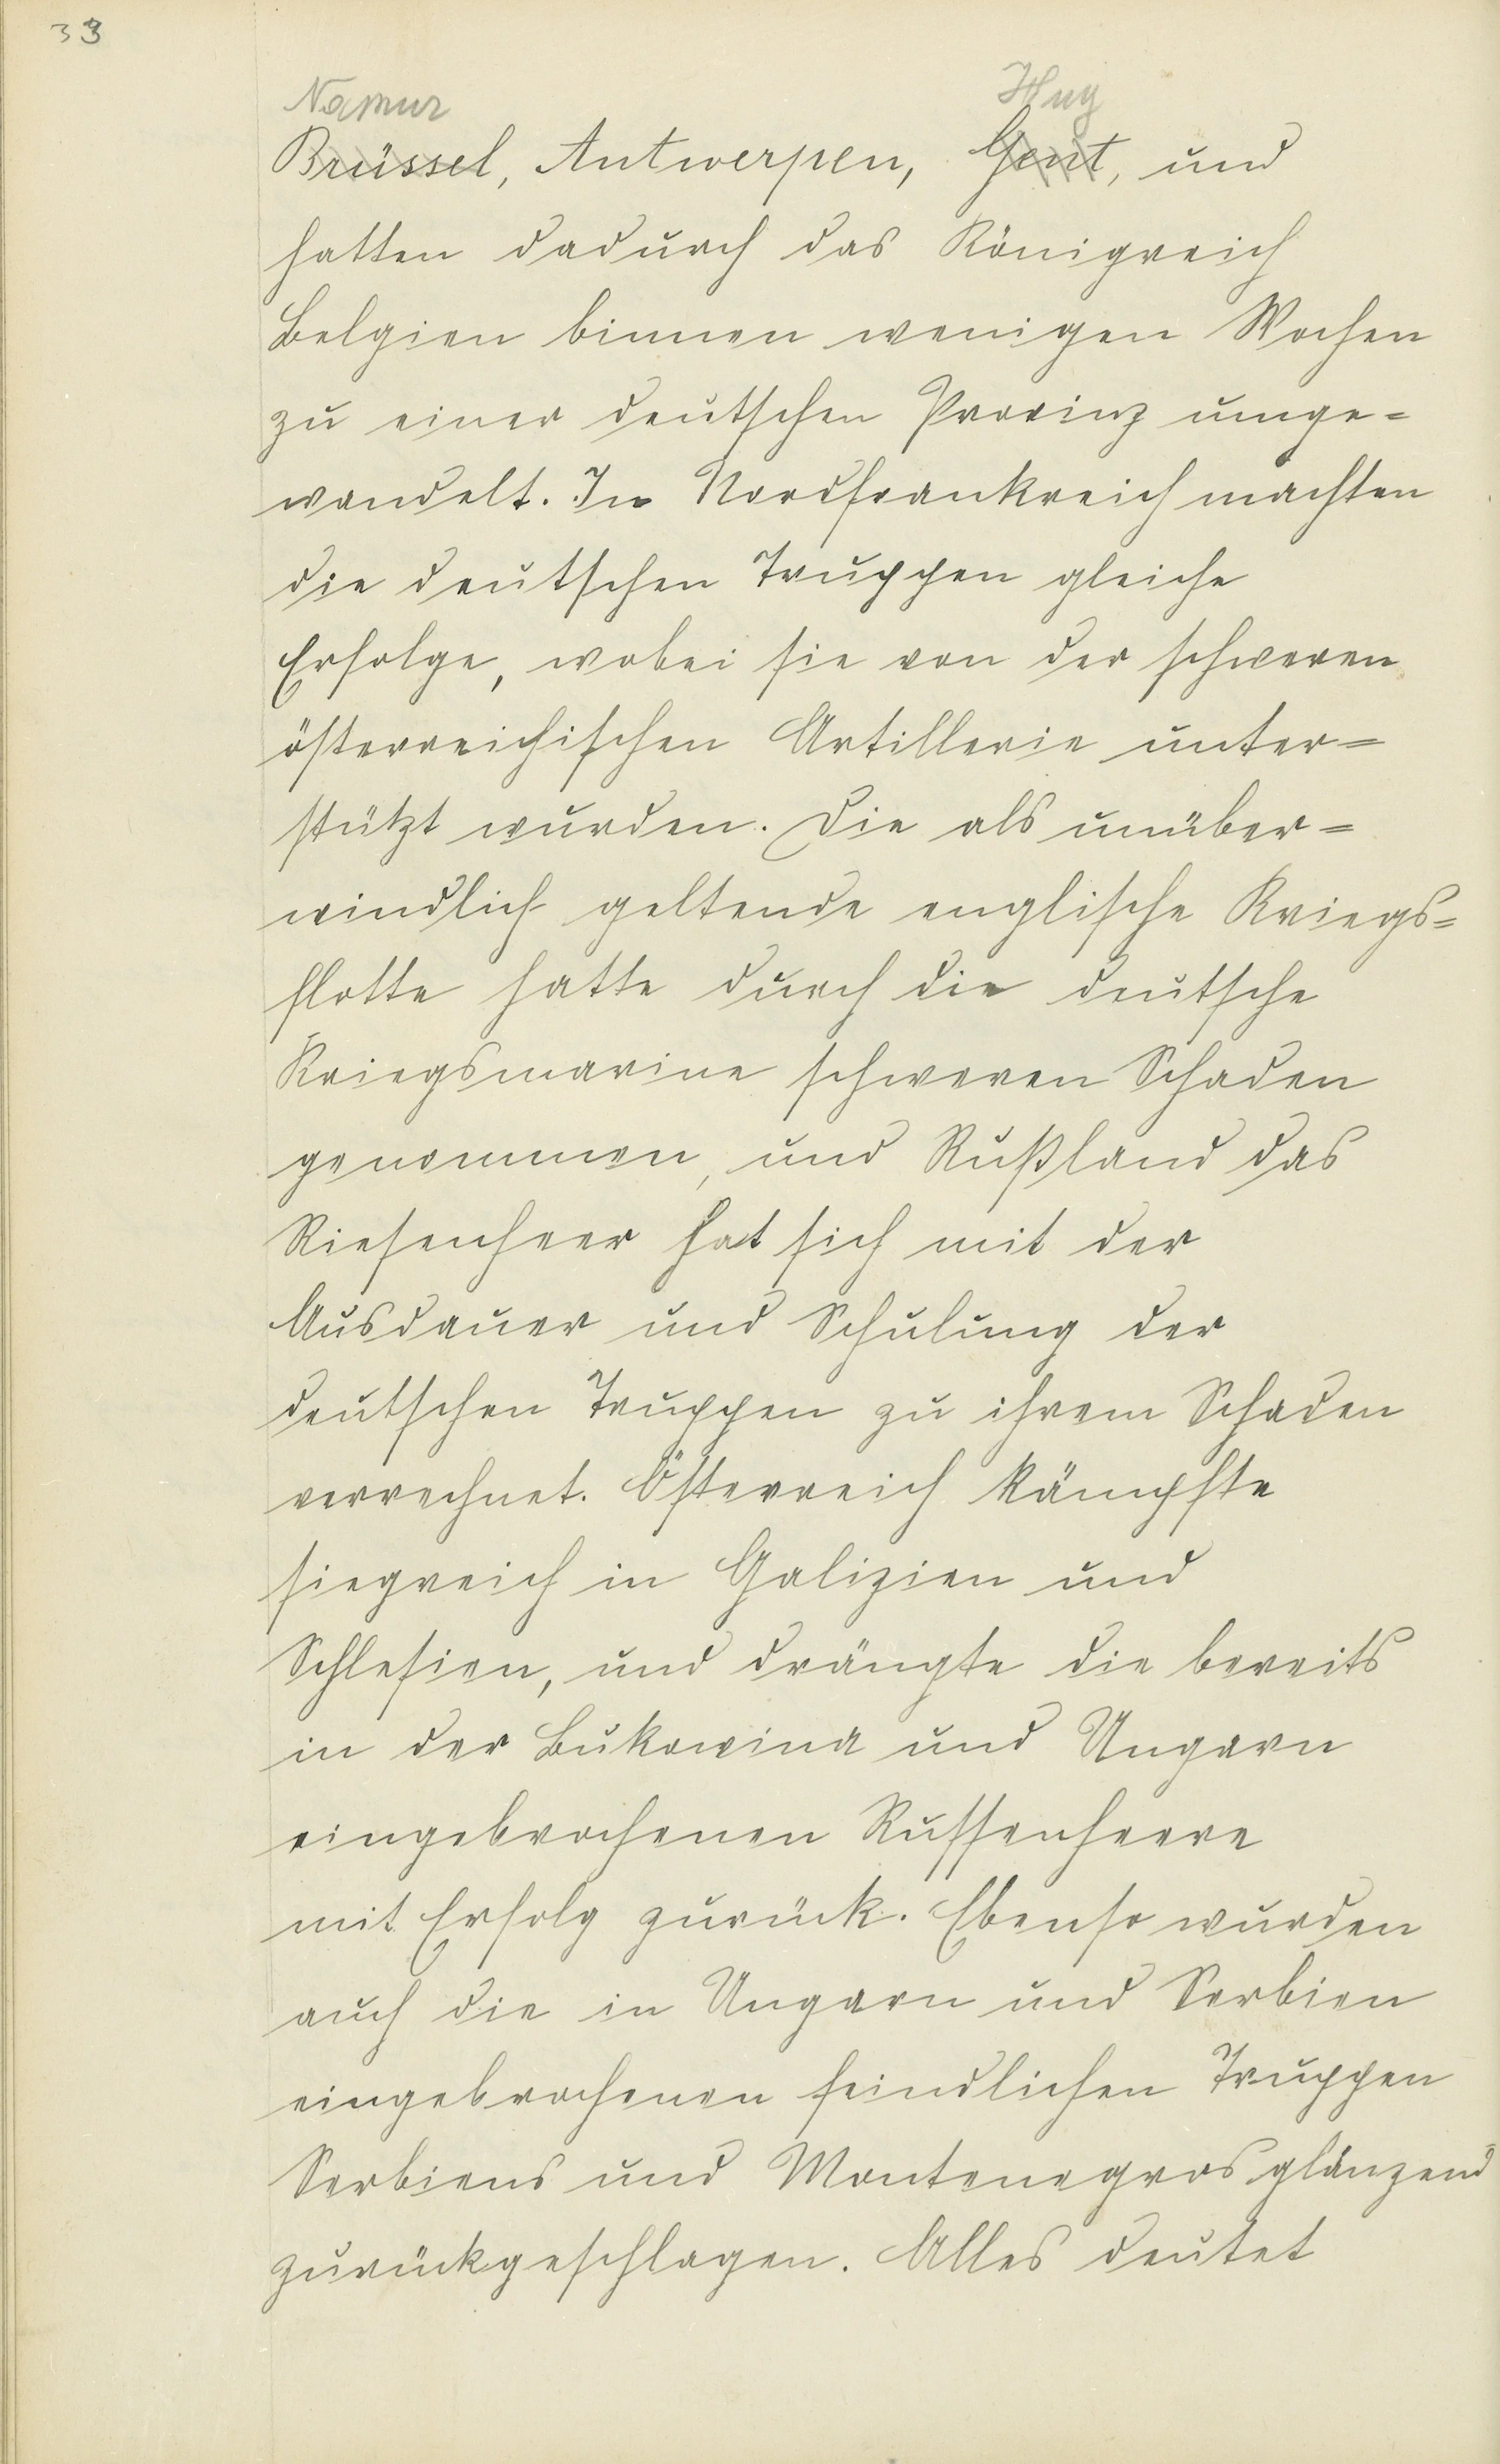 33
Namur Huy
Brüssel, Antwerpen, Gent, und
hatten dadurch das Königreich
Belgien binnen wenigen Wochen
zu einer deutschen Provinz umge=
wandelt. In Nordfrankreich machten
die deutschen Truppen gleiche
Erfolge, wobei sie von der schweren
österreichischen Artillerie unter=
stützt wurden. Die als unüber=
windlich geltende englische Kriegs=
flotte hatte durch die deutsche
Kriegsmarine schweren Schaden
genommen, und Rußland das
Riesenheer hat sich mit der
Ausdauer und Schulung der
deutschen Truppen zu ihrem Schaden
verrechnet. Österreich kämpfte
siegreich in Galizien und
Schlesien, und drängte die bereits
in der Bukowina und Ungarn
eingebrochenen Russenheere
mit Erfolg zurück. Ebenso wurden
auch die in Ungarn und Serbien
eingebrochenen feindlichen Truppen
Serbiens und Montenegros glänzend
zurückgeschlagen. Alles deutet